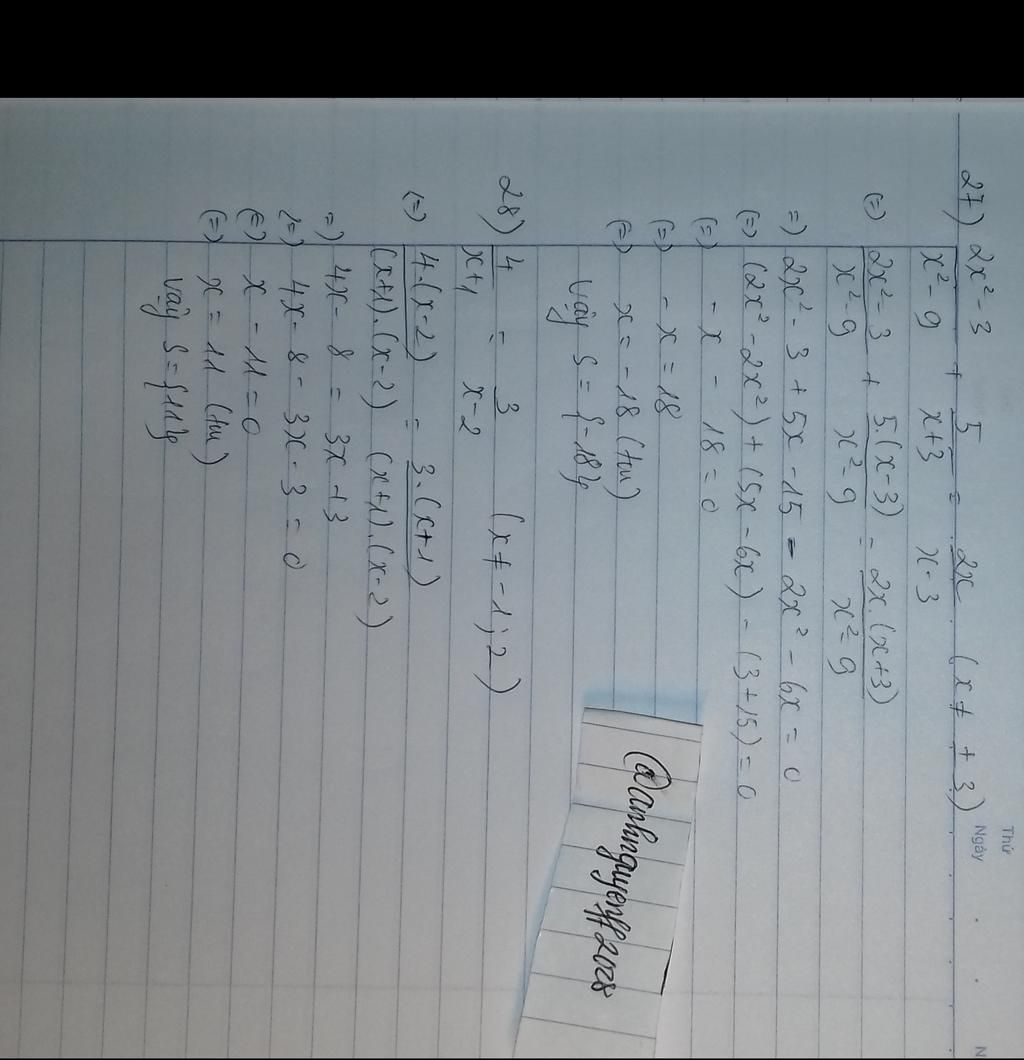 Thứ
Ngày . . N
27) 2x² - 3 / x² - 9 + 5 / x+3 = 2x / x - 3 (x ≠ ± 3)
(=) 2x² - 3 / x² - 9 + 5.(x - 3) / x² - 9 = 2x.(x+3) / x² - 9
=) 2x² - 3 + 5x - 15 - 2x² - 6x = 0
(=) (2x² - 2x²) + (5x - 6x) - (3 + 15) = 0
(=) - x - 18 = 0
(=) - x = 18
(=) x = - 18 (tm)
Vậy S = {-18}
28) 4 / x+1 = 3 / x - 2 (x ≠ - 1 ; 2)
(=) 4.(x - 2) / (x+1).(x - 2) = 3.(x+1) / (x+1).(x - 2)
=) 4x - 8 = 3x + 3
(=) 4x - 8 - 3x - 3 = 0
(=) x - 11 = 0
(=) x = 11 (tm)
Vậy S = {11}
@anhnguyenff2028